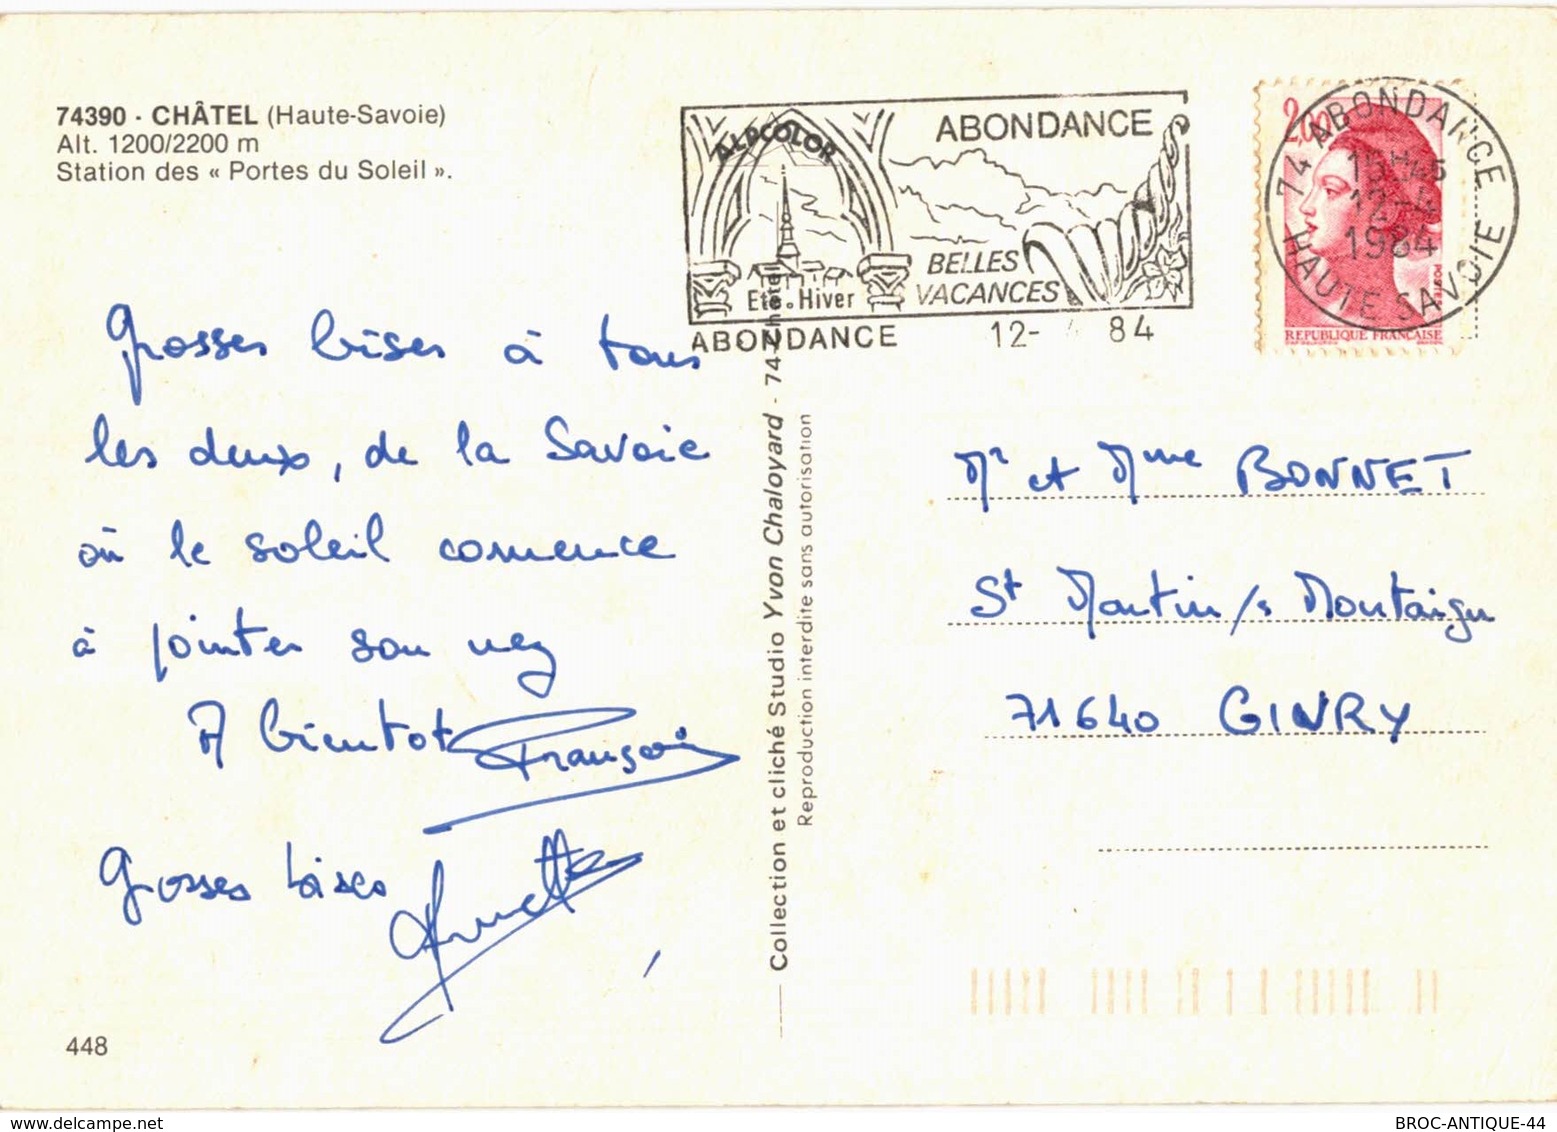 74390 - CHÂTEL (Haute-Savoie)
Alt. 1200/2200 m
Station des « Portes du Soleil ».
Grosses bises à tous
les deux, de la Savoie
où le soleil commence
à pointer son nez
A bientot François
Grosses bises
448
ALPCOLOR
ABONDANCE
BELLES
VACANCES
Eté . Hiver
ABONDANCE 12- 4 84
74 ABONDANCE
15H45
12-4
1984
HAUTE SAVOIE
2,00
POSTES
REPUBLIQUE FRANÇAISE
Collection et cliché Studio Yvon Chaloyard - 74-Châtel
Reproduction interdite sans autorisation
Mr et Mme BONNET
St Martin /s Montaigu
71640 GIVRY
BROC-ANTIQUE-44